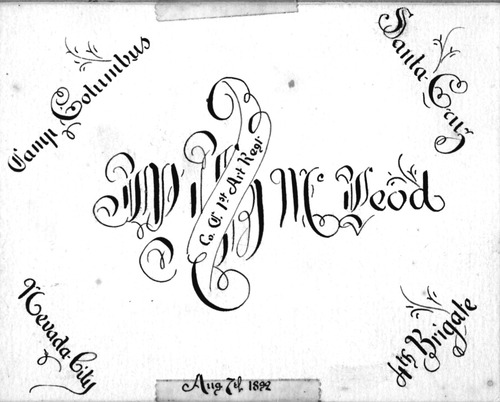 Camp Columbus
Santa-Cruz
Co. C. 1st Art Regt
McLeod
Nevada-City
4th Brigate
Aug 7th, 1892